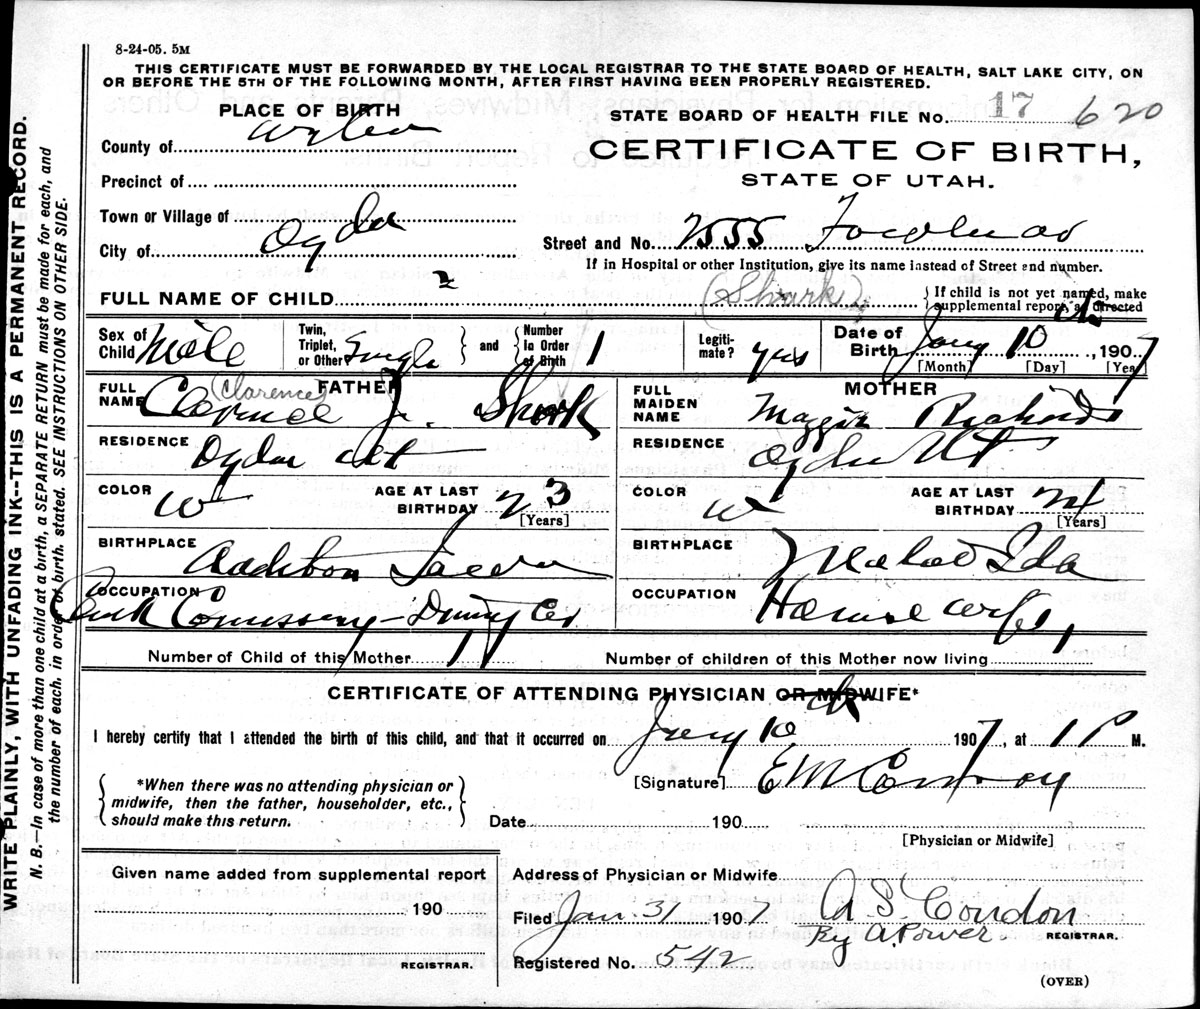 8-24-05. 5M
THIS CERTIFICATE MUST BE FORWARDED BY THE LOCAL REGISTRAR TO THE STATE BOARD OF HEALTH, SALT LAKE CITY, ON
OR BEFORE THE 5TH OF THE FOLLOWING MONTH, AFTER FIRST HAVING BEEN PROPERLY REGISTERED.
PLACE OF BIRTH
STATE BOARD OF HEALTH FILE No. 17 620
County of
CERTIFICATE OF BIRTH,
STATE OF UTAH.
Precinct of
Town or Village of
City of Ogden
Street and No. 2555
If in Hospital or other Institution, give its name instead of Street and number.
FULL NAME OF CHILD (Shurk)
If child is not yet named, make
supplemental report, as directed
Sex of Child Male
Twin, Triplet, or Other Single and Number In Order of Birth 1
Legitimate? yes
Date of Birth Jany 10 1907
[Month] [Day] [Year]
FATHER
FULL NAME Clarence (Clarence) J. Shurk
MOTHER
FULL MAIDEN NAME Maggie Richards
RESIDENCE Ogden Ut
RESIDENCE Ogden Ut
COLOR W AGE AT LAST BIRTHDAY 23 [Years]
COLOR W AGE AT LAST BIRTHDAY 24 [Years]
BIRTHPLACE
BIRTHPLACE Malad Ida
OCCUPATION
OCCUPATION House wife
Number of Child of this Mother 1
Number of children of this Mother now living
CERTIFICATE OF ATTENDING PHYSICIAN OR MIDWIFE*
I hereby certify that I attended the birth of this child, and that it occurred on Jany 10 1907, at 1 P M.
*When there was no attending physician or
midwife, then the father, householder, etc.,
should make this return.
[Signature] E M Conroy
Date 190
[Physician or Midwife]
Given name added from supplemental report
190
REGISTRAR.
Address of Physician or Midwife
Filed Jan. 31, 1907 A S Condon
By A. Power. REGISTRAR.
Registered No. 542
(OVER)
WRITE PLAINLY, WITH UNFADING INK--THIS IS A PERMANENT RECORD.
N. B.—In case of more than one child at a birth, a SEPARATE RETURN must be made for each, and
the number of each, in order of birth, stated. SEE INSTRUCTIONS ON OTHER SIDE.